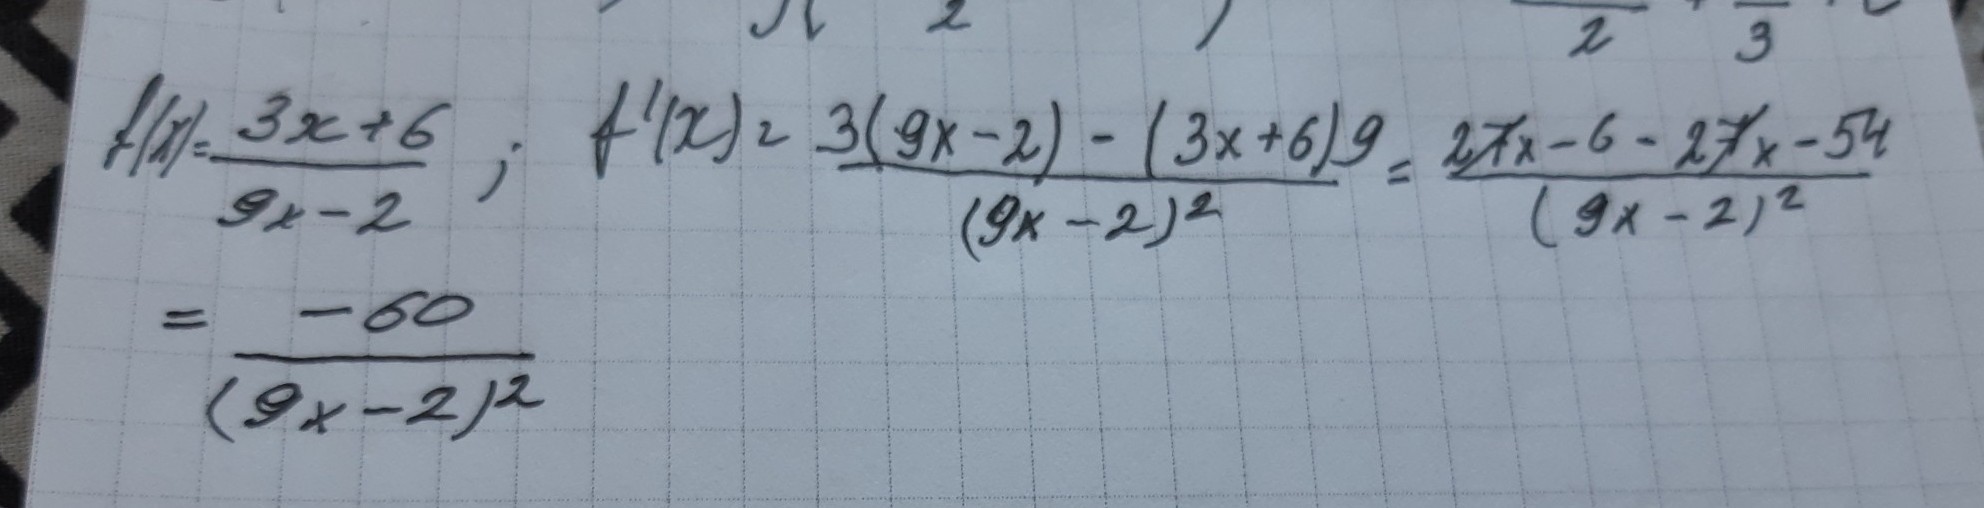 2 ) 2 3
f(x) = (3x+6)/(9x-2) ; f'(x) = (3(9x-2) - (3x+6)9)/((9x-2)²) = (27x-6-27x-54)/((9x-2)²)
= (-60)/((9x-2)²)